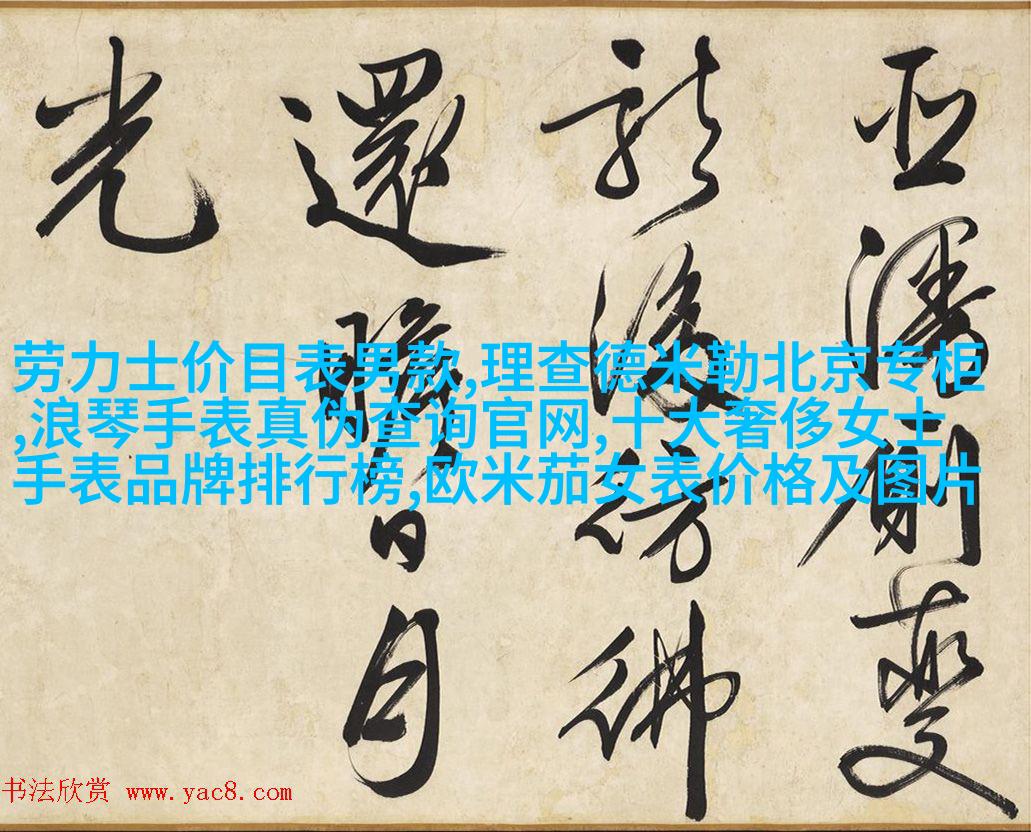 劳力士价目表男款,理查德米勒北京专柜
,浪琴手表真伪查询官网,十大奢侈女士
手表品牌排行榜,欧米茄女表价格及图片
變
後彷彿
還瞻日月
光
书法欣赏 www.yac8.com